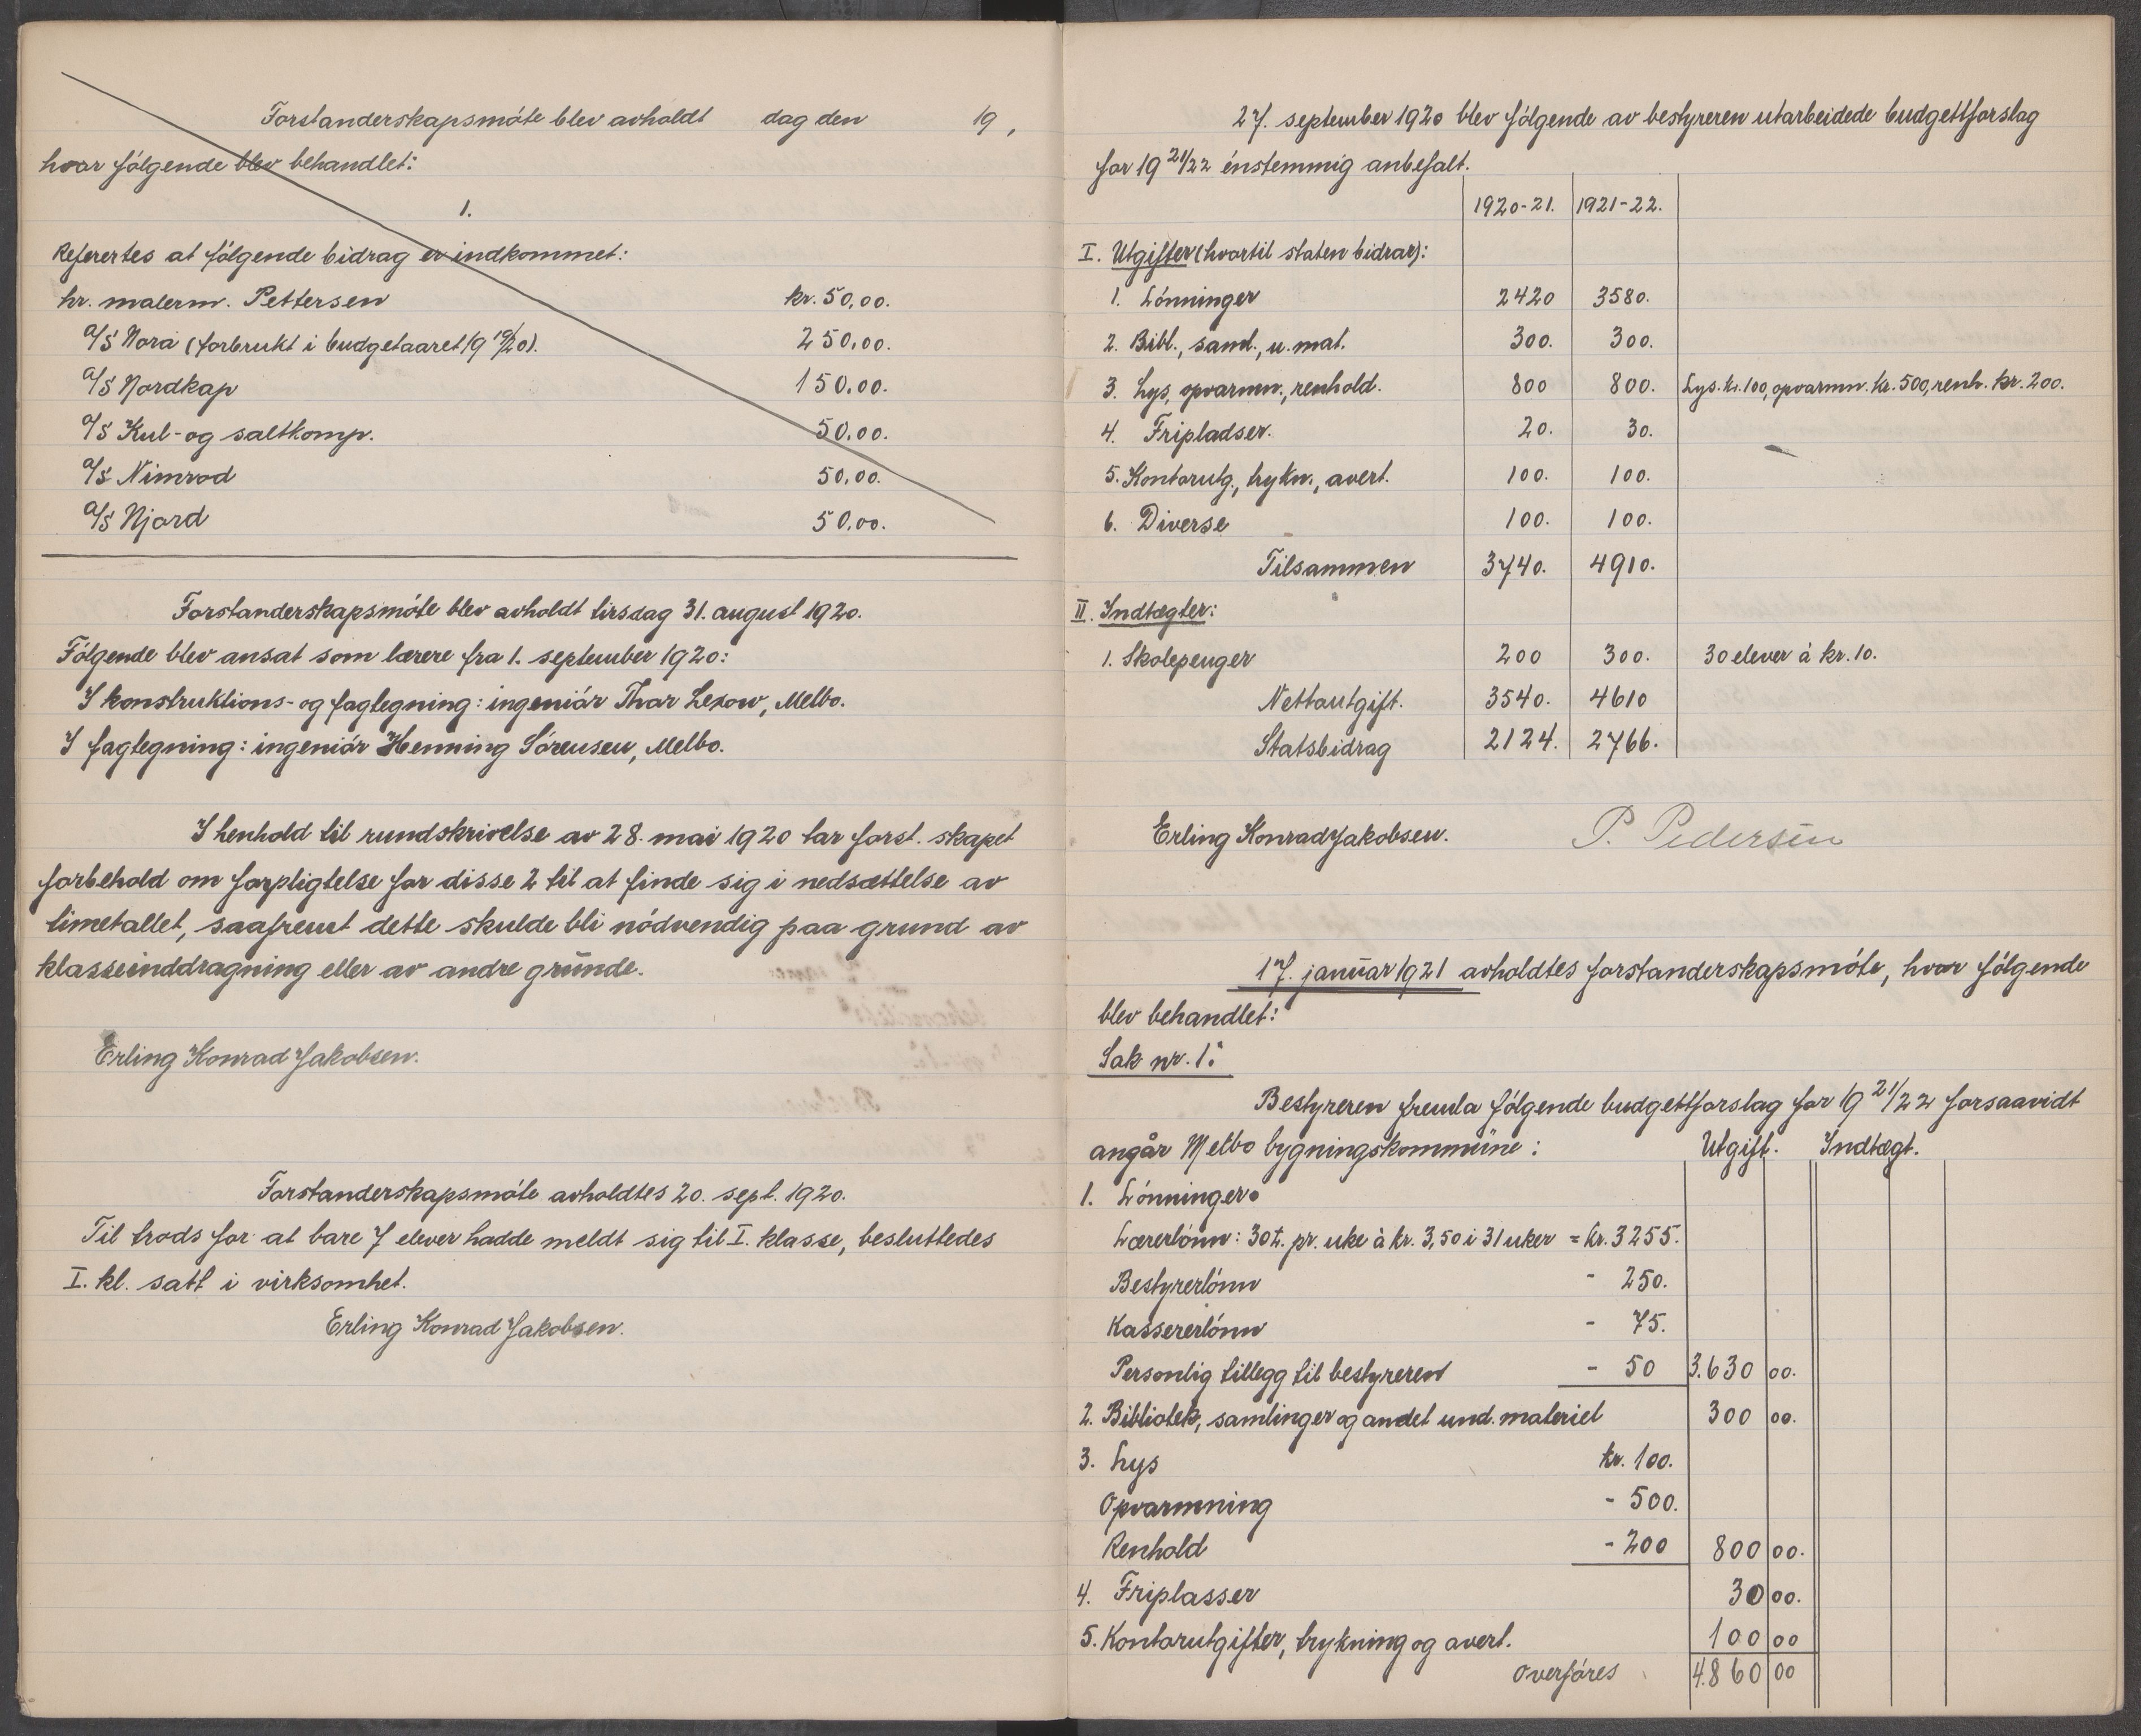 Forstanderskapsmøte blev avholdt dag den 19 ,
hvor følgende blev behandlet:
1.
Refertes at følgende bidrag er indkommet:
hr. malerm. Pettersen kr. 50,00.
A/S Nora (forbrukt i budgetaaret 19 19/20). 250,00.
A/S Nordkap 150,00.
A/S Kul- og saltkomp. 50,00.
A/S Nimrod 50,00.
A/S Njord 50,00.
Forstanderskapsmøte blev avholdt tirsdag 31. august 1920.
Følgende blev ansat som lærere fra 1. september 1920:
I konstruktions- og fagtegning: ingeniør Thor Lexow, Melbo.
I fagtegning: ingeniør Henning Sørensen, Melbo.
I henhold til rundskrivelse av 28. mai 1920 tar forst. skapet
forbehold om forpligtelse for disse 2 til at finde sig i nedsættelse av
timetallet, saafremt dette skulde bli nødvendig paa grund av
klasseinddragning eller av andre grunde.
Erling Konrad Jakobsen.
Forstanderskapsmøte avholdtes 20. sept. 1920.
Til trods for at bare 7 elever hadde meldt sig til I. klasse, besluttedes
I. kl. satt i virksomhet.
Erling Konrad Jakobsen.
27. september 1920 blev følgende av bestyreren utarbeidede budgettforslag
for 19 21/22 énstemmig anbefalt.
1920-21. 1921-22.
I. Utgifter (hvortil staten bidrar):
1. Lønninger 2420 3580.
2. Bibl., saml., u. mat. 300. 300.
3. Lys, opvarmn., renhold. 800 800. Lys. kr. 100, opvarmn. kr. 500, renh. kr. 200.
4. Fripladser. 20. 30.
5. Kontorutg., trykn., avert. 100. 100.
6. Diverse 100. 100.
Tilsammen 3740. 4910.
II. Indtægter:
1. Skolepenger 200 300. 30 elever à kr. 10.
Nettoutgift. 3540. 4610
Statsbidrag 2124. 2766.
Erling Konrad Jakobsen. P. Pedersen
17. januar 1921 avholdtes forstanderskapsmøte, hvor følgende
blev behandlet:
Sak nr. 1:
Bestyreren fremla følgende budgettforslag for 19 21/22 forsaavidt
angår Melbo bygningskommune: Utgift. Indtægt.
1. Lønninger.
Lærerlønn: 30 t. pr. uke à kr. 3,50 i 31 uker = kr. 3255.
Bestyrerlønn - 250.
Kassererlønn - 75.
Personlig tillegg til bestyreren - 50 3.630 00.
2. Bibliotek, samlinger og andet und. materiel 300 00.
3. Lys kr. 100.
Opvarmning - 500.
Renhold - 200 800 00.
4. Friplasser 30 00.
5. Kontorutgifter, trykning og avert. 100 00
Overføres 4.860 00